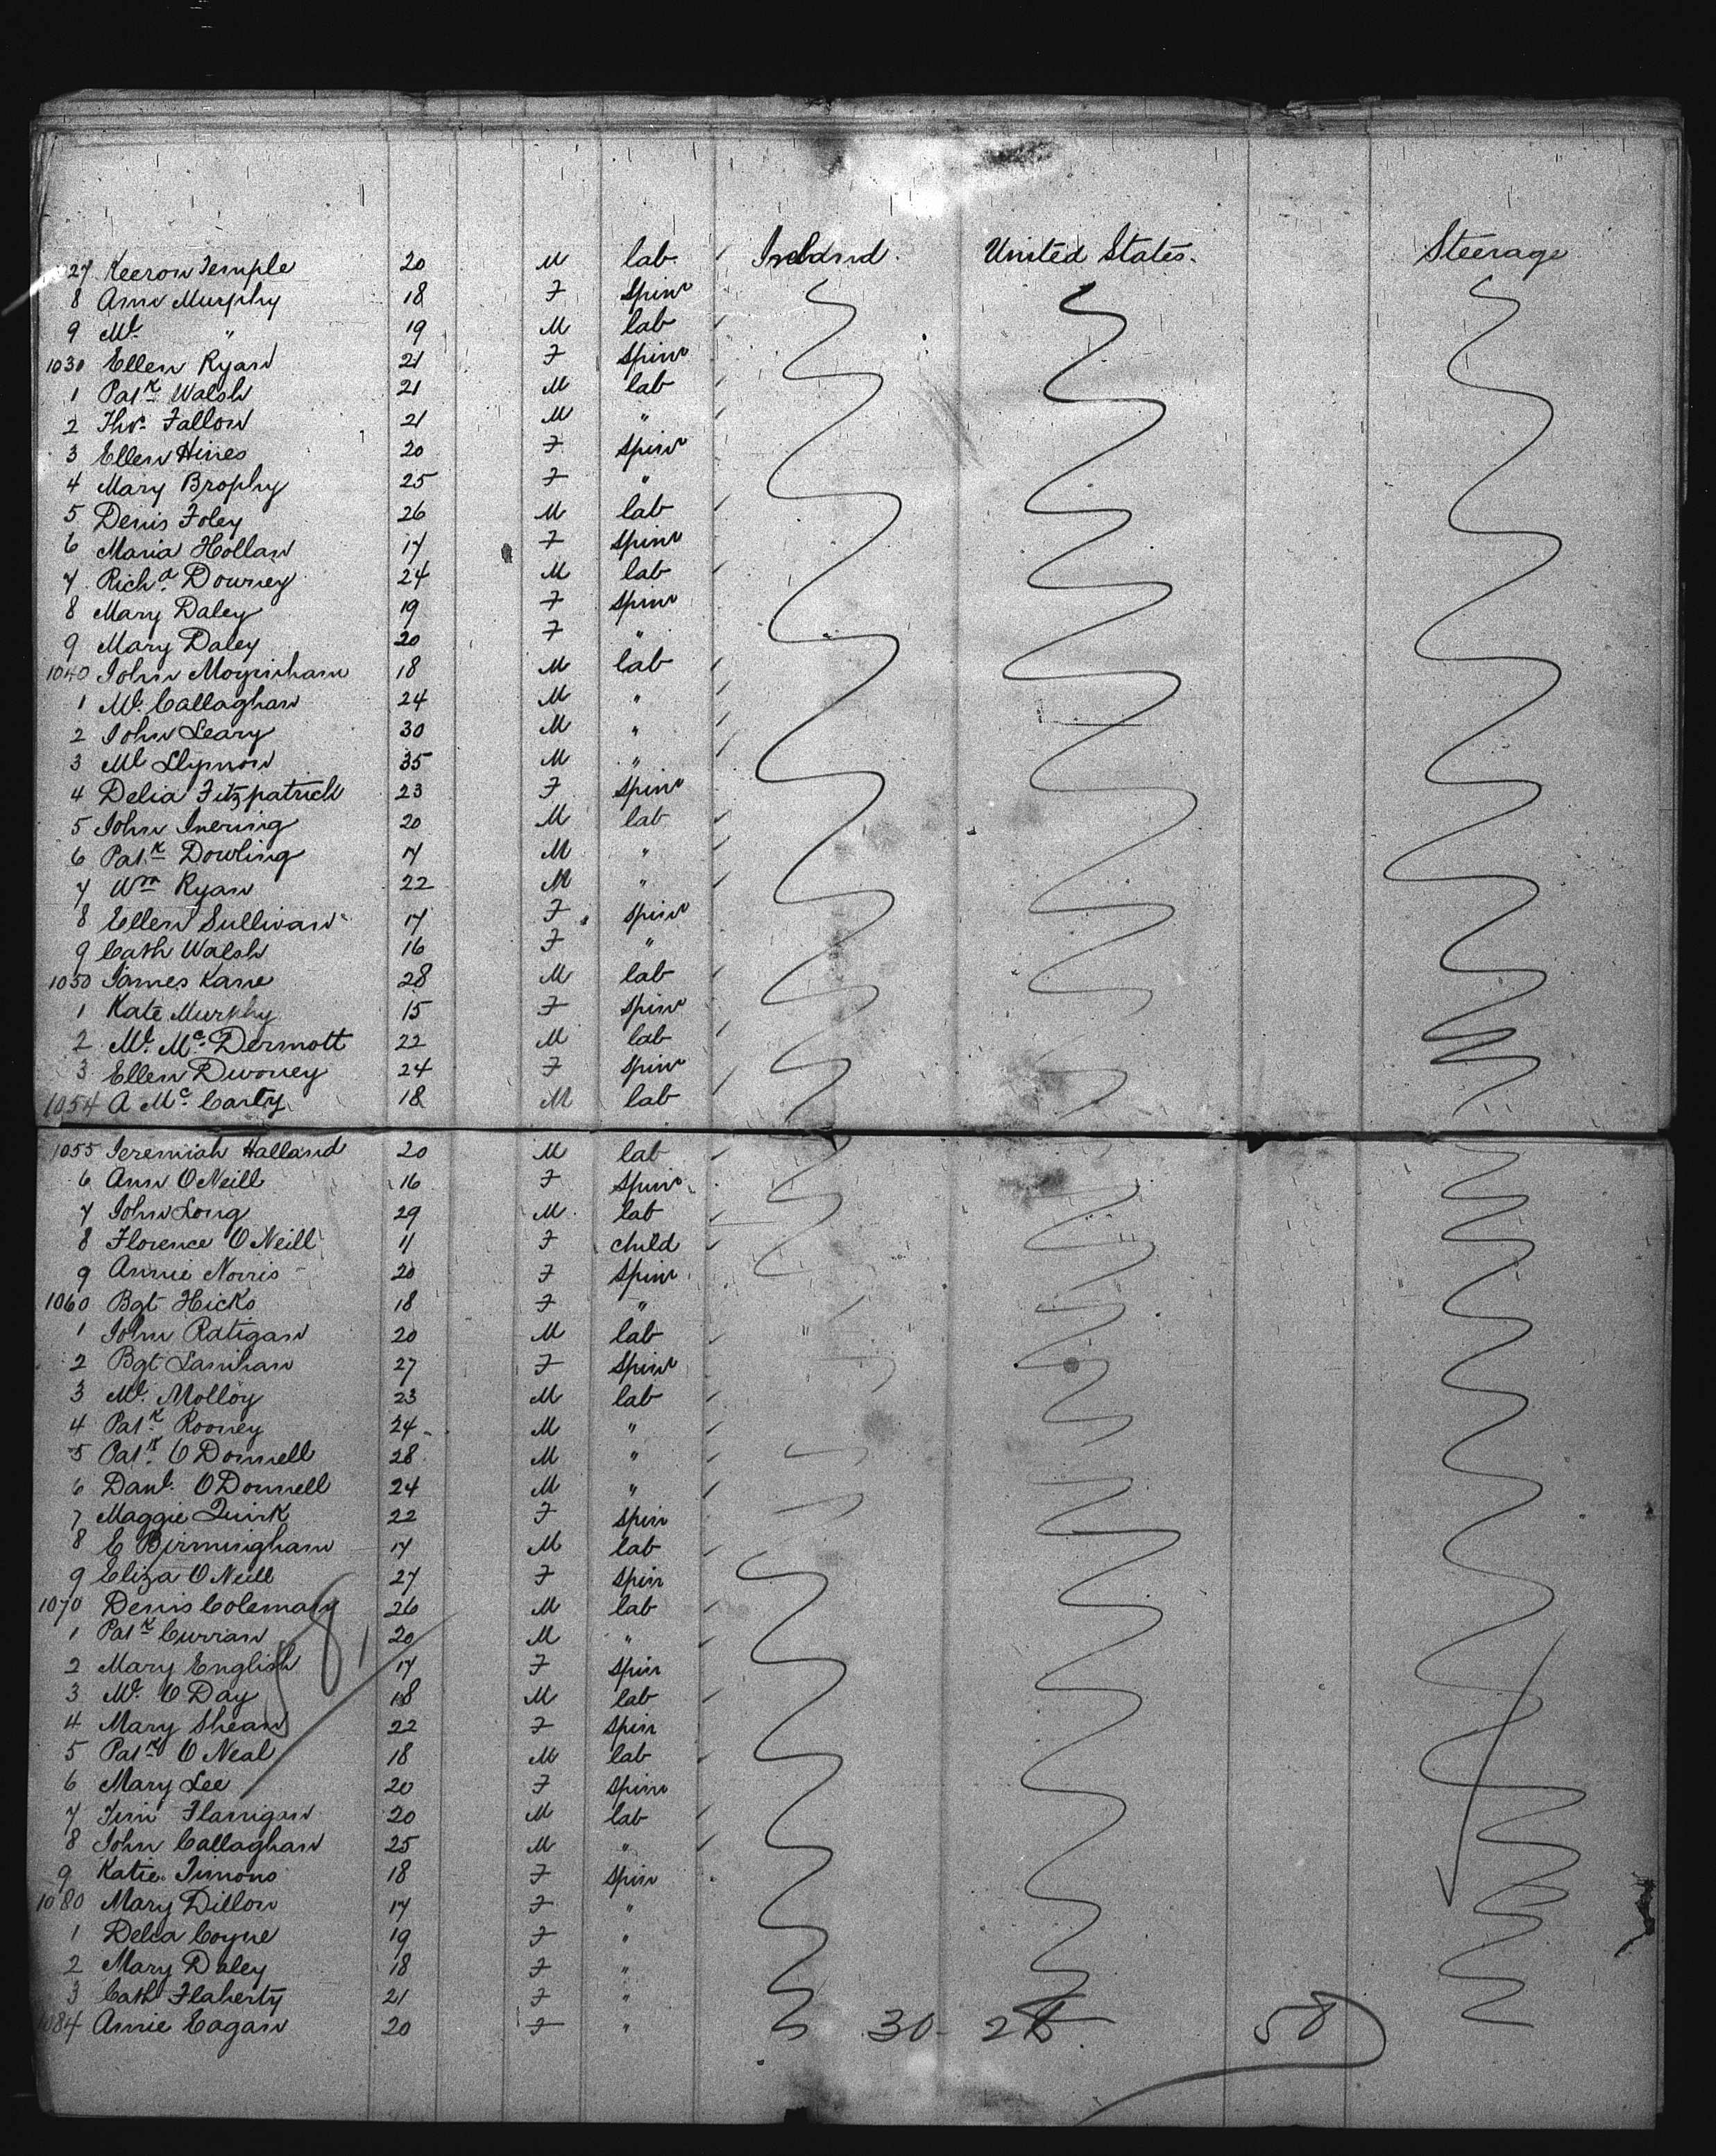 27 Keeron Temple 20 M lab Ireland. United States. Steerage
8 Ann Murphy 18 F Spinr
9 Ml. " 19 M lab
1030 Ellen Ryan 21 F Spinr
1 Patk Walsh 21 M lab
2 Tho. Fallon 21 M "
3 Ellen Hines 20 F Spinr
4 Mary Brophy 25 F "
5 Denis Foley 26 M lab
6 Maria Hollan 17 F Spinr
7 Richd. Downey 24 M lab
8 Mary Daley 19 F Spinr
9 Mary Daley 20 F "
1040 John Moynihan 18 M lab
1 Ml. Callaghan 24 M "
2 John Leary 30 M "
3 Ml 35 M "
4 Delia Fitzpatrick 23 F Spinr
5 John 20 M lab
6 Patk Dowling 17 M "
7 Wm Ryan 22 M "
8 Ellen Sullivan 17 F Spinr
9 Cath Walsh 16 F "
1050 James Kane 28 M lab
1 Kate Murphy 15 F Spinr
2 Ml. Mc. Dermott 22 M lab
3 Ellen Dwoney 24 F Spinr
1054 A Mc. Carty 18 M lab
1055 Jeremiah Halland 20 M lab
6 Ann O Neill 16 F Spinr
7 John Long 29 M lab
8 Florence O Neill 11 F child
9 Annie Norris 20 F Spinr
1060 Bgt Hicks 18 F "
1 John Ratigan 20 M lab
2 Bgt Lanihan 27 F Spinr
3 Ml. Molloy 23 M lab
4 Patk. Rooney 24 M "
5 Patk. O Donnell 28 M "
6 Danl. O Donnell 24 M "
7 Maggie Quirk 22 F Spin
8 E Birmingham 17 M lab
9 Eliza O Neill 27 F Spin
1070 Denis Coleman 26 M lab
1 Patk Curran 20 M "
2 Mary English 17 F Spin
3 Ml. O Day 18 M lab
4 Mary Shean 22 F Spin
5 Patk O Neal 18 M lab
6 Mary Lee 20 F Spinr
7 Jim Flanigan 20 M lab
8 John Callaghan 25 M "
9 Katie Timons 18 F Spin
1080 Mary Dillon 17 F "
1 Delia Coyne 19 F "
2 Mary Daley 18 F "
3 Cath Flaherty 21 F "
1084 Annie Eagan 20 F " 30 - 28 58
58